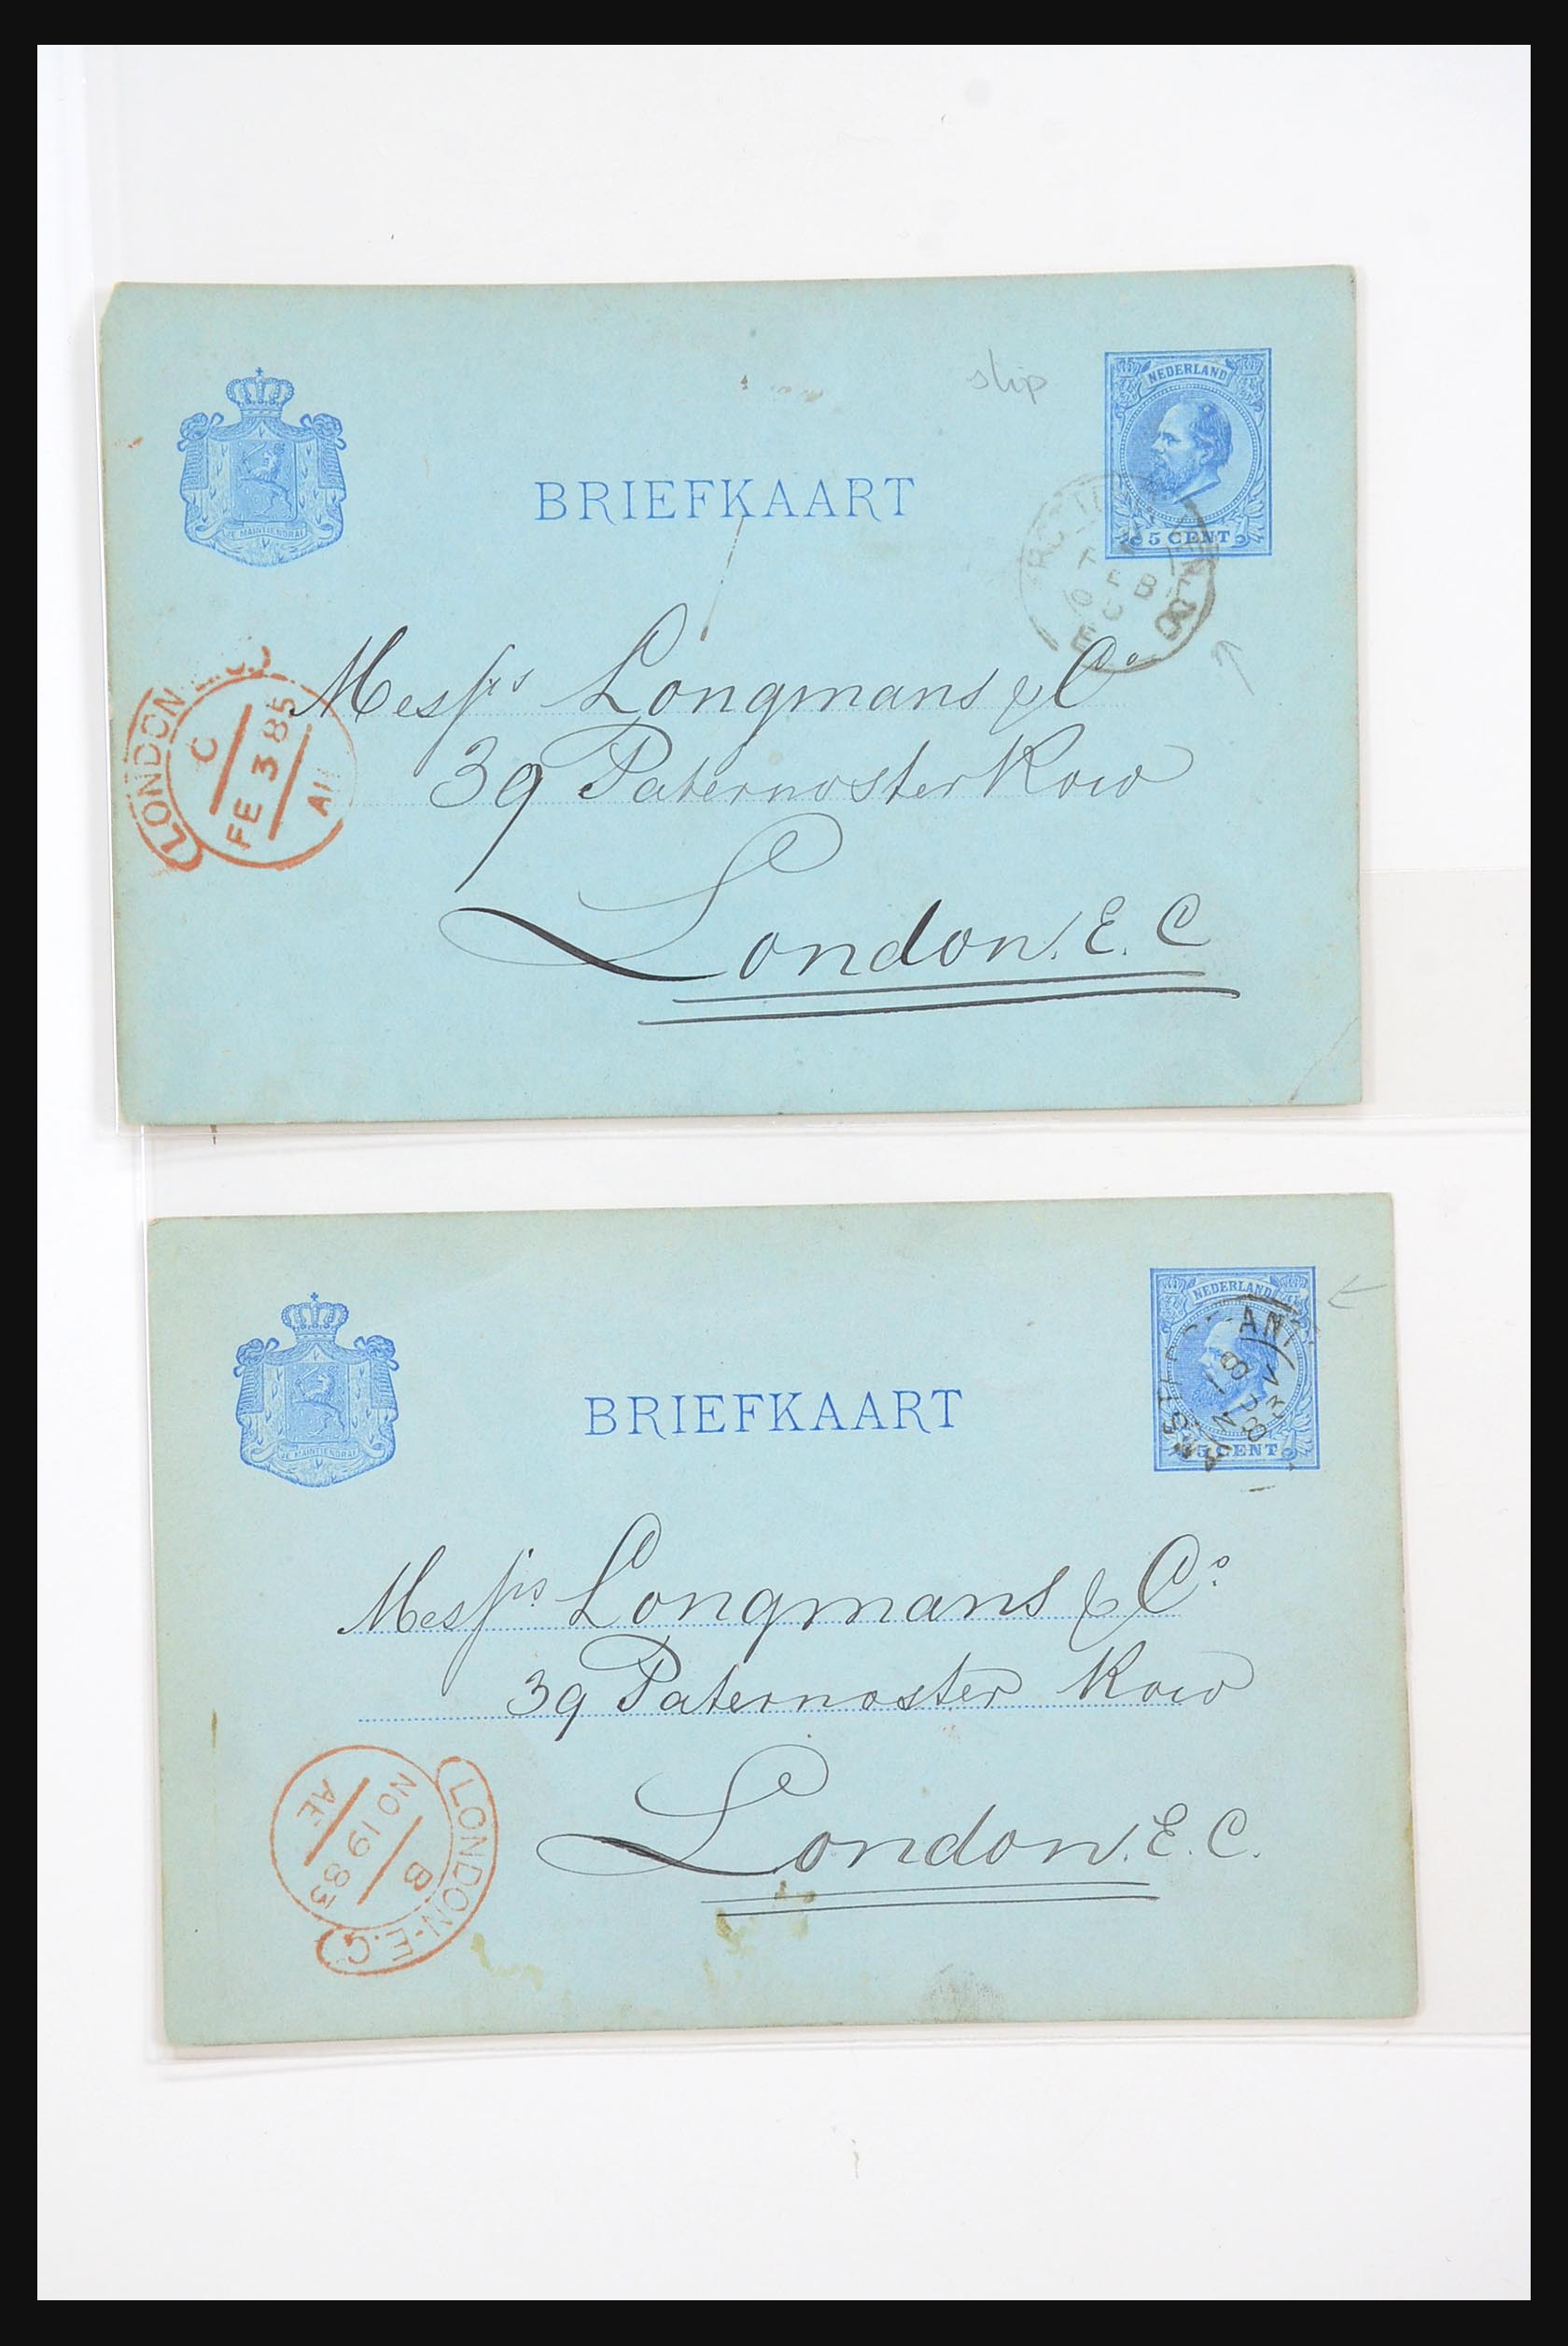 slip
NEDERLAND
5 CENT
JE MAINTIENDRAI
BRIEFKAART
FEB
LONDON
C
FE 3 85
Messrs Longmans & Co
39 Paternoster Row
London. E. C
NEDERLAND
5 CENT
JE MAINTIENDRAI
BRIEFKAART
18
NOV
83
Messrs Longmans & Co.
39 Paternoster Row
London. E. C.
LONDON-E.C
B
NO 19 83
AE